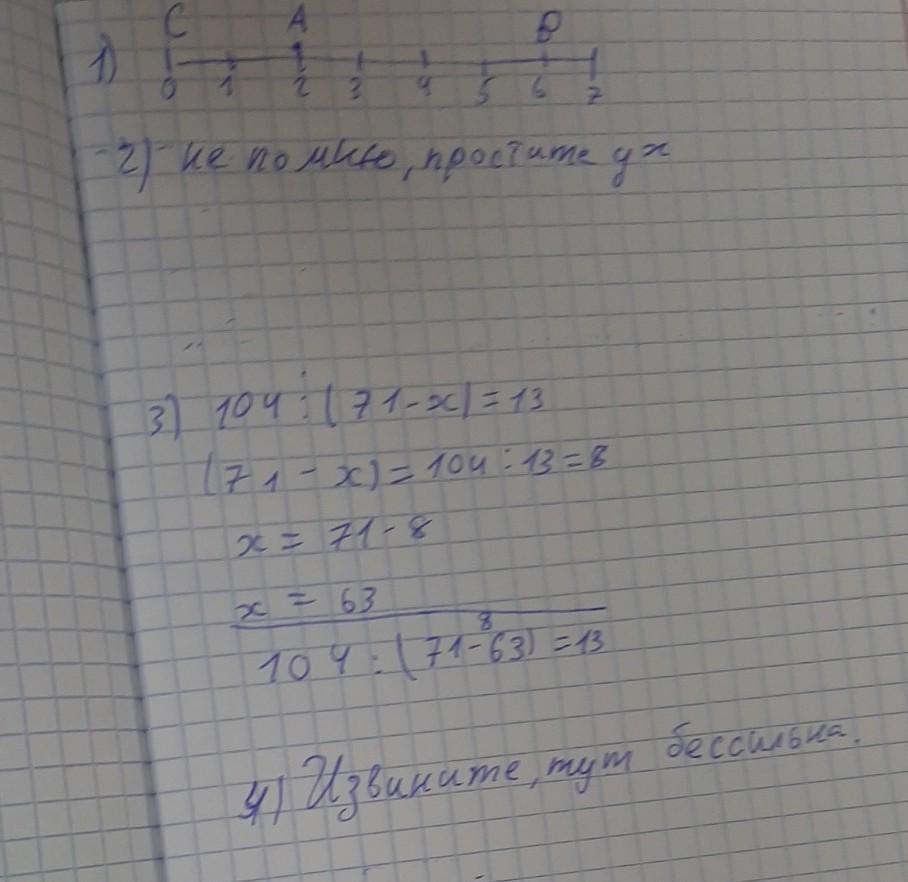 C A B
1) 0 1 2 3 4 5 6 7
2) не помню, простите уж
3) 104 : (71-x) = 13
(71 - x) = 104 : 13 = 8
x = 71 - 8
x = 63
8
104 : (71-63) = 13
4) Извините, тут бессильна.